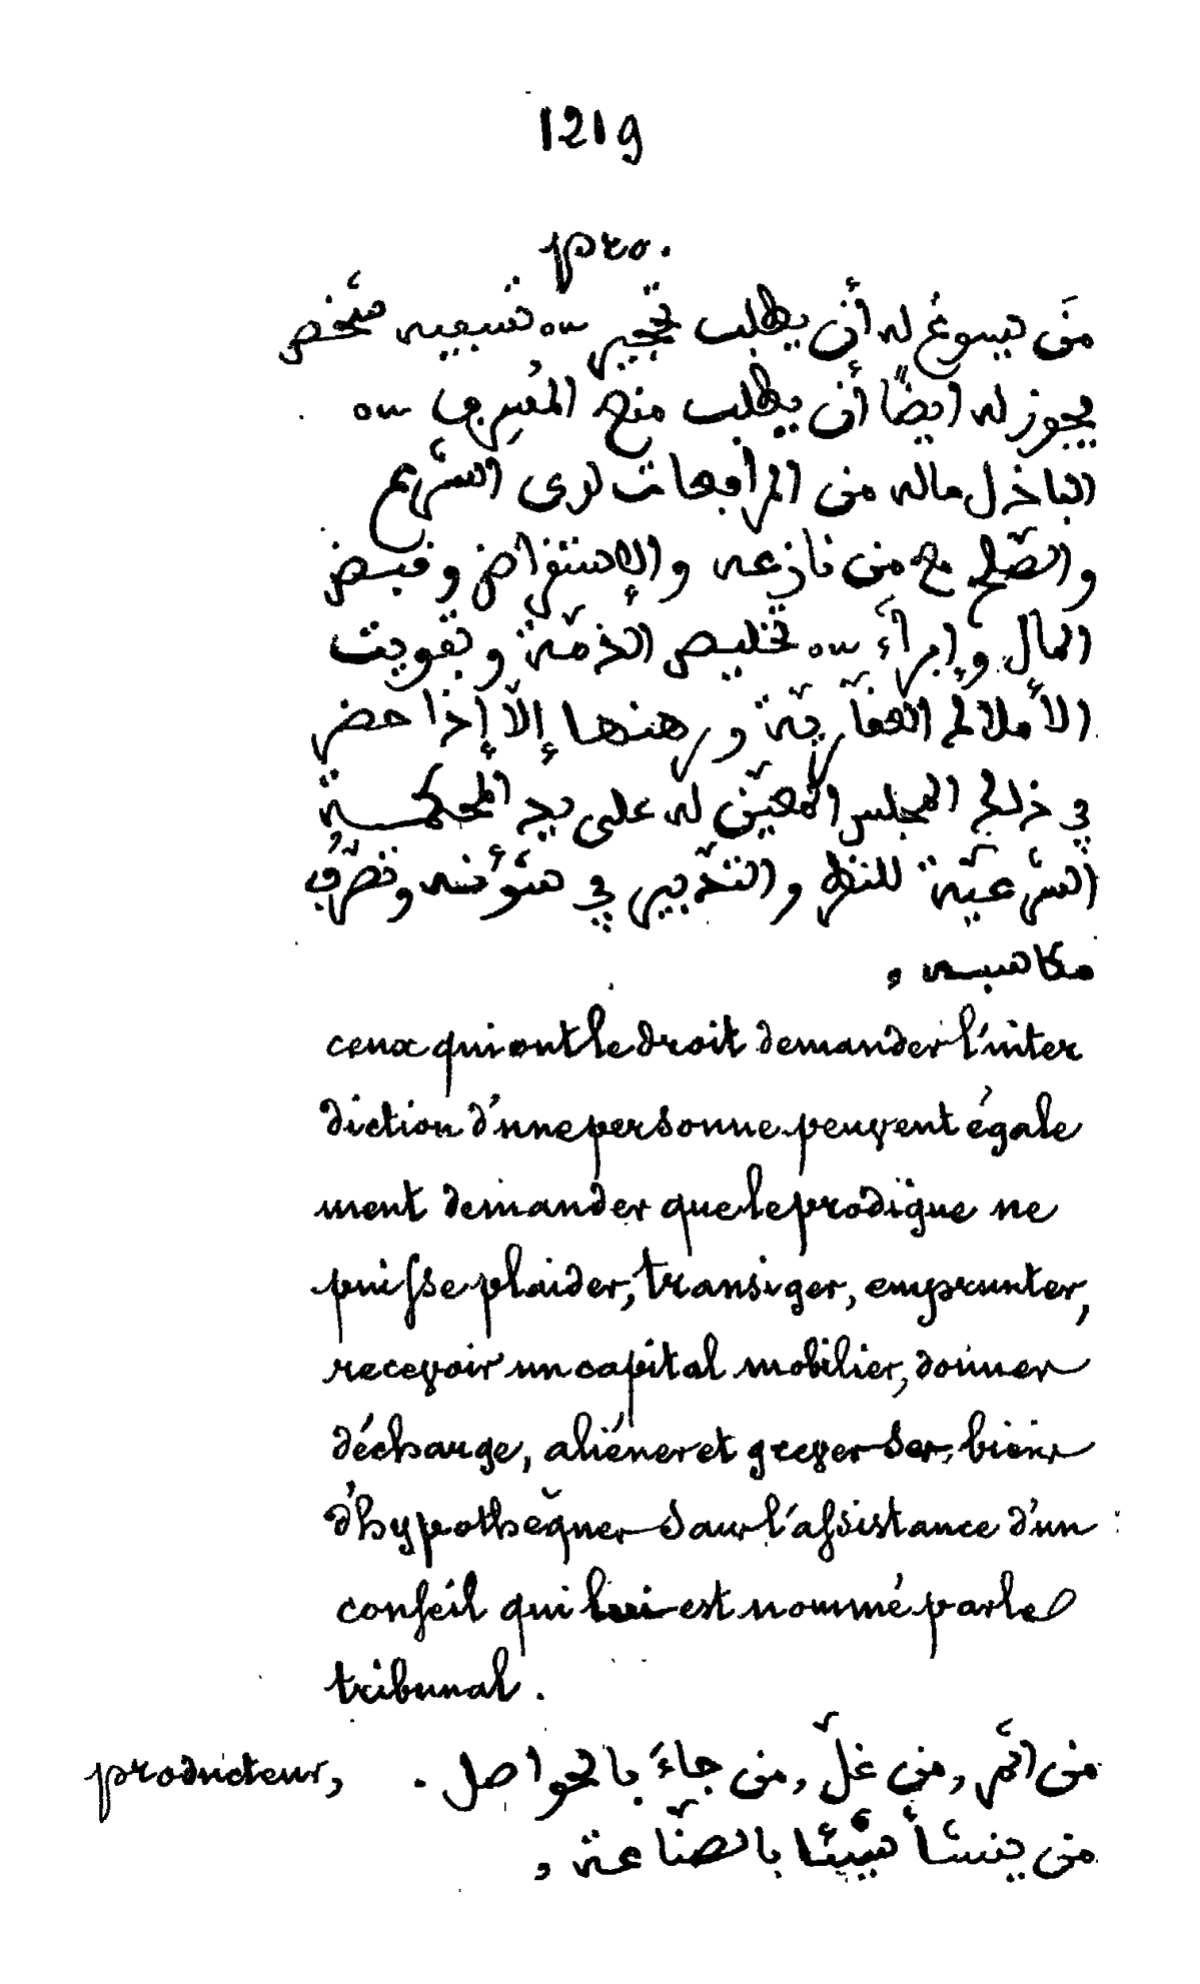 1219
pro.
مَن يسوغ له أن يطلب تحجير ou تسبيه شخص
يجوز له ايضًا أن يطلب منع المُسرِف ou
الباذل ماله من المرافعات لدى الشرع
والصّلح مع من نازعه والإستقراض وقبض
المال وإبراءَ ou تخليص الذمّة وتفويت
الأملاك العقاّريّة ورهنها إلاّ إذا حضر
في ذلك المجلس المعيّن له على يد المحكمة
الشرعيّة للنظر والتدّبير في شؤنه وتصرّف
مكاسبه ,
ceux qui ont le droit demander l'inter
diction d'une personne peuvent égale
ment demander que le prodigue ne
puisse plaider, transiger, emprunter,
recevoir un capital mobilier, donner
décharge, aliéner et grever ses biens
d'hypothéquer sans l'assistance d'un
conseil qui lui est nommé par le
tribunal.
producteur, من اثمر , من غلّ , من جاءَ بالحواصل .
من ينشأ شيئا بالصنّاعة ,